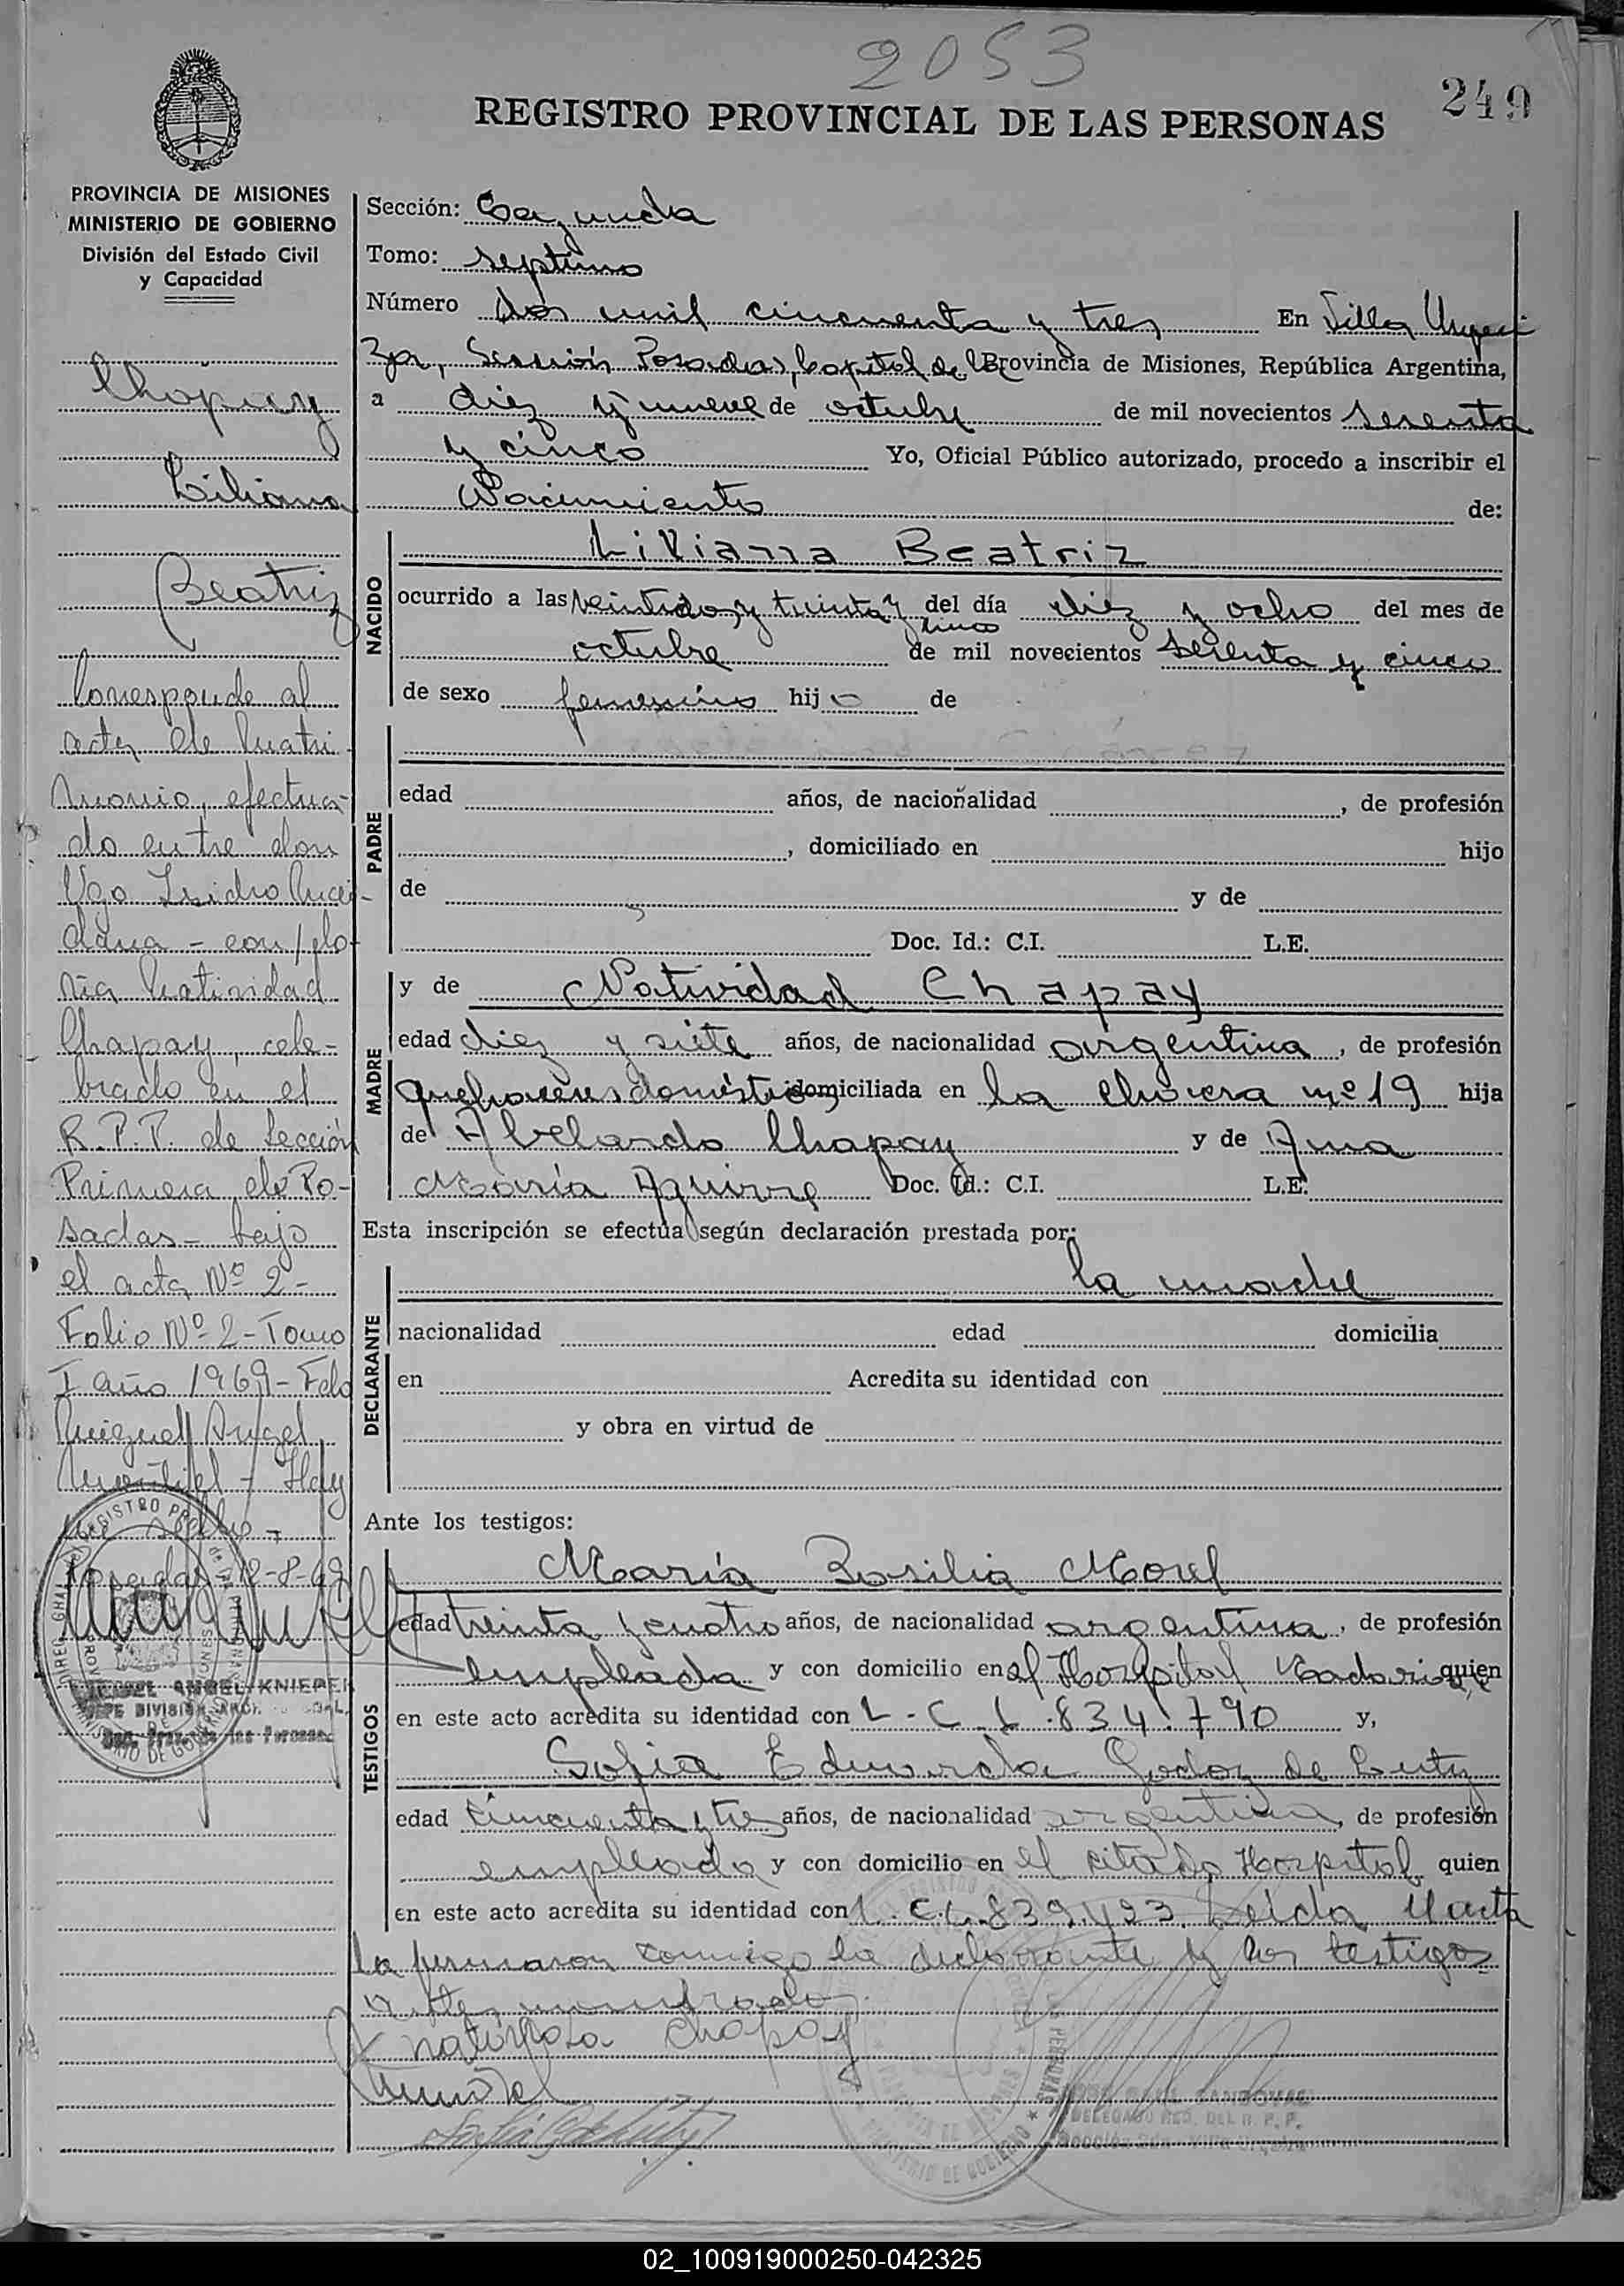 2053
249
REGISTRO PROVINCIAL DE LAS PERSONAS
PROVINCIA DE MISIONES
MINISTERIO DE GOBIERNO
División del Estado Civil
y Capacidad
Chapay
Liliana
Beatriz
Corresponde al
acta de Matri-
monio, efectua-
do entre don
Ugo Isidro
- con
Natividad
Chapay, cele-
brado en el
R.P.P. de Sección
Primera de Po-
sadas - bajo
el acta Nº 2 -
Folio Nº 2 - Tomo
I año 1969 - Fdo
Miguel Angel
Hay
Posadas 12-8-69
MIGUEL ANGEL KNIEPER
JEFE DIVISIÓN
Reg. Prov. de las Personas
Sección: Segunda
Tomo: septimo
Número Dos mil cincuenta y tres En Villa Urqui
za, Sección Posadas, Capital de la Provincia de Misiones, República Argentina,
a diez y nueve de octubre de mil novecientos sesenta
y cinco Yo, Oficial Público autorizado, procedo a inscribir el
Nacimiento de:
NACIDO
Liliana Beatriz
ocurrido a las veintidos y treinta y cinco del día diez y ocho del mes de
octubre de mil novecientos sesenta y cinco
de sexo femenino hij a de
PADRE
edad años, de nacionalidad , de profesión
, domiciliado en hijo
de y de
Doc. Id.: C.I. L.E.
MADRE
y de Natividad Chapay
edad diez y siete años, de nacionalidad argentina, de profesión
quehaceres domésticos domiciliada en la Chacra nº 19 hija
de Abelardo Chapay y de Ana
María Aguirre Doc. Id.: C.I. L.E.
Esta inscripción se efectúa según declaración prestada por:
DECLARANTE
la madre
nacionalidad edad domicilia
en Acredita su identidad con
y obra en virtud de
Ante los testigos:
TESTIGOS
María Basilia Morel
edad treinta y cuatro años, de nacionalidad argentina, de profesión
empleada y con domicilio en el Hospital Madariaga quien
en este acto acredita su identidad con L.C. 6.834.790 y,
Sofia Eduvarda Godoy de Lutz
edad cincuenta y tres años, de nacionalidad argentina, de profesión
empleada y con domicilio en el citado Hospital quien
en este acto acredita su identidad con L.C. 6.839.493. Leida el acta
la firmaron conmigo la declarante y los testigos
antes nombrados.
natividad chapay
SANDOVAL
DELEGADO REG. DEL R. P. P.
Sección 2da. Villa Urquiza
02_100919000250-042325